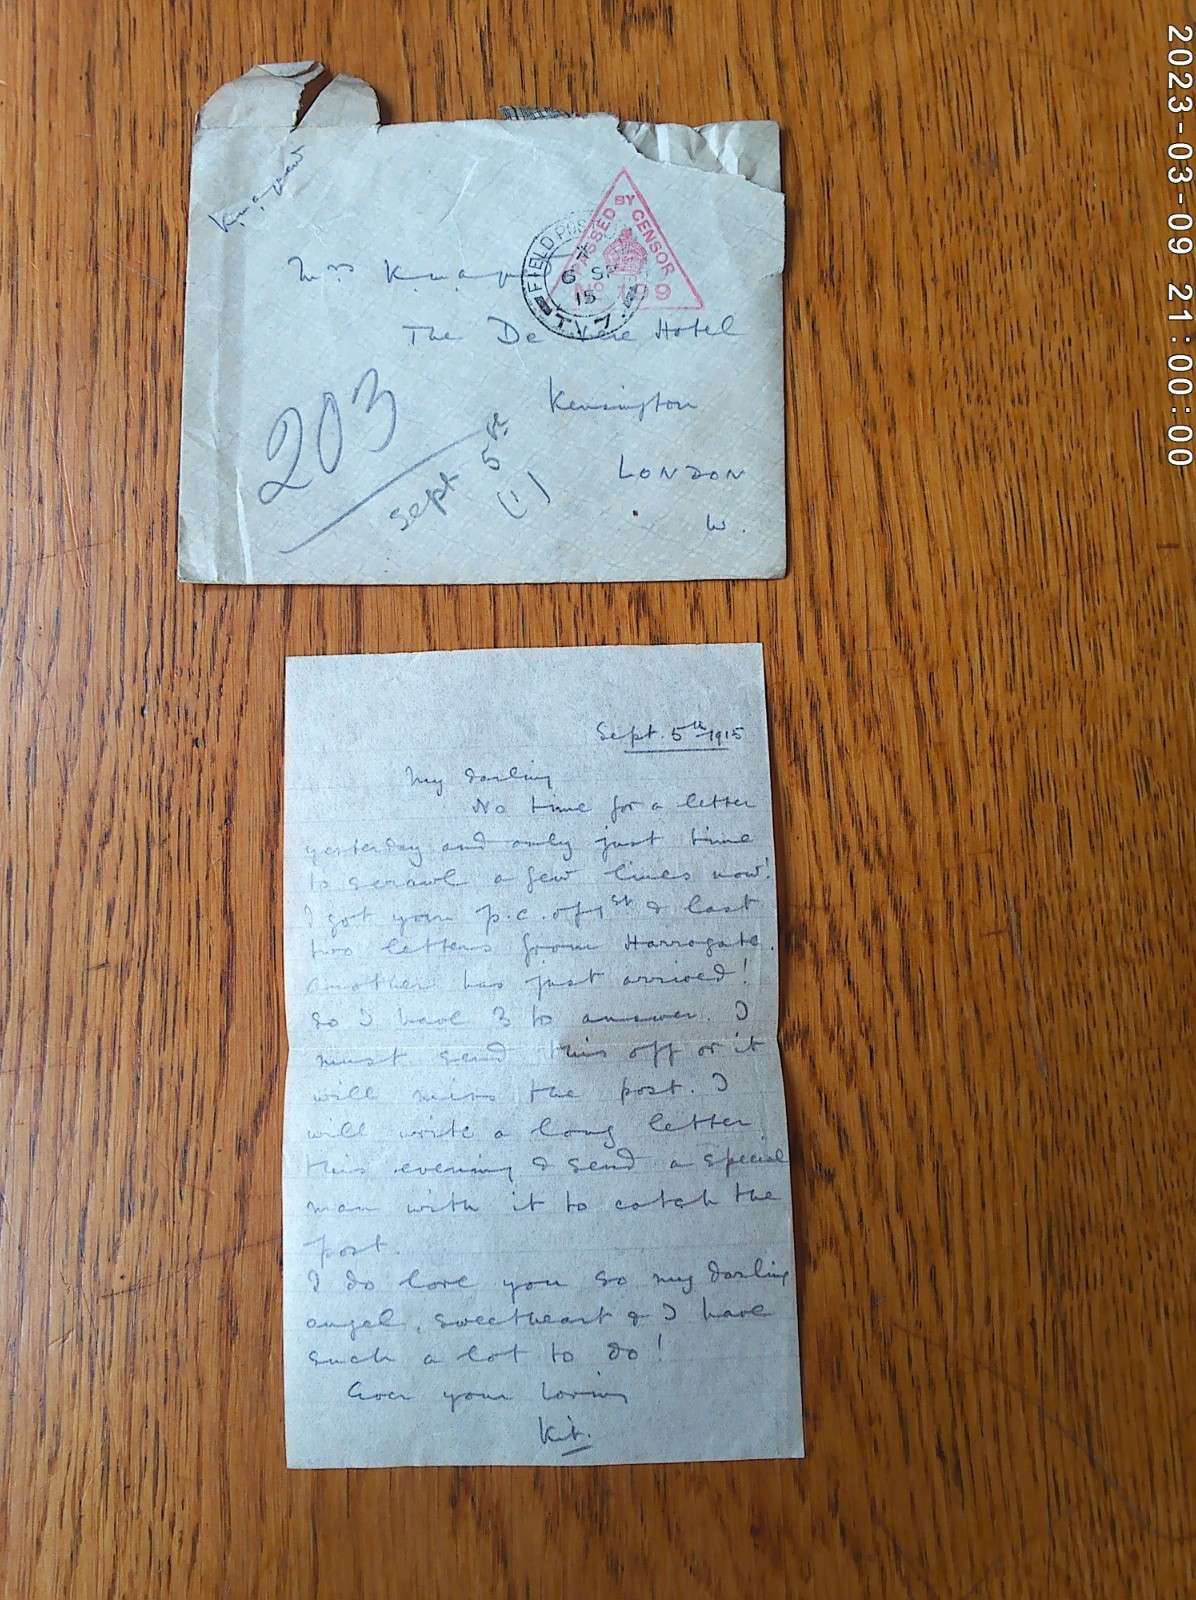 Mrs K.
The De Vere Hotel
Kensington
LONDON
W.
203
Sept 5th
(1)
FIELD POST
6 SP
15
T.Y.7.
PASSED BY CENSOR
No 199
Sept. 5th 1915
My darling
No time for a letter
yesterday and only just time
to scrawl a few lines now!
I got your p.c. of 1st & last
two letters from Harrogate.
Another has just arrived!
So I have 3 to answer. I
must send this off or it
will miss the post. I
will write a long letter
this evening & send a special
man with it to catch the
post.
I do love you so my darling
angel, sweetheart & I have
such a lot to do!
Ever your loving
Kit.
2023-03-09 21:00:00